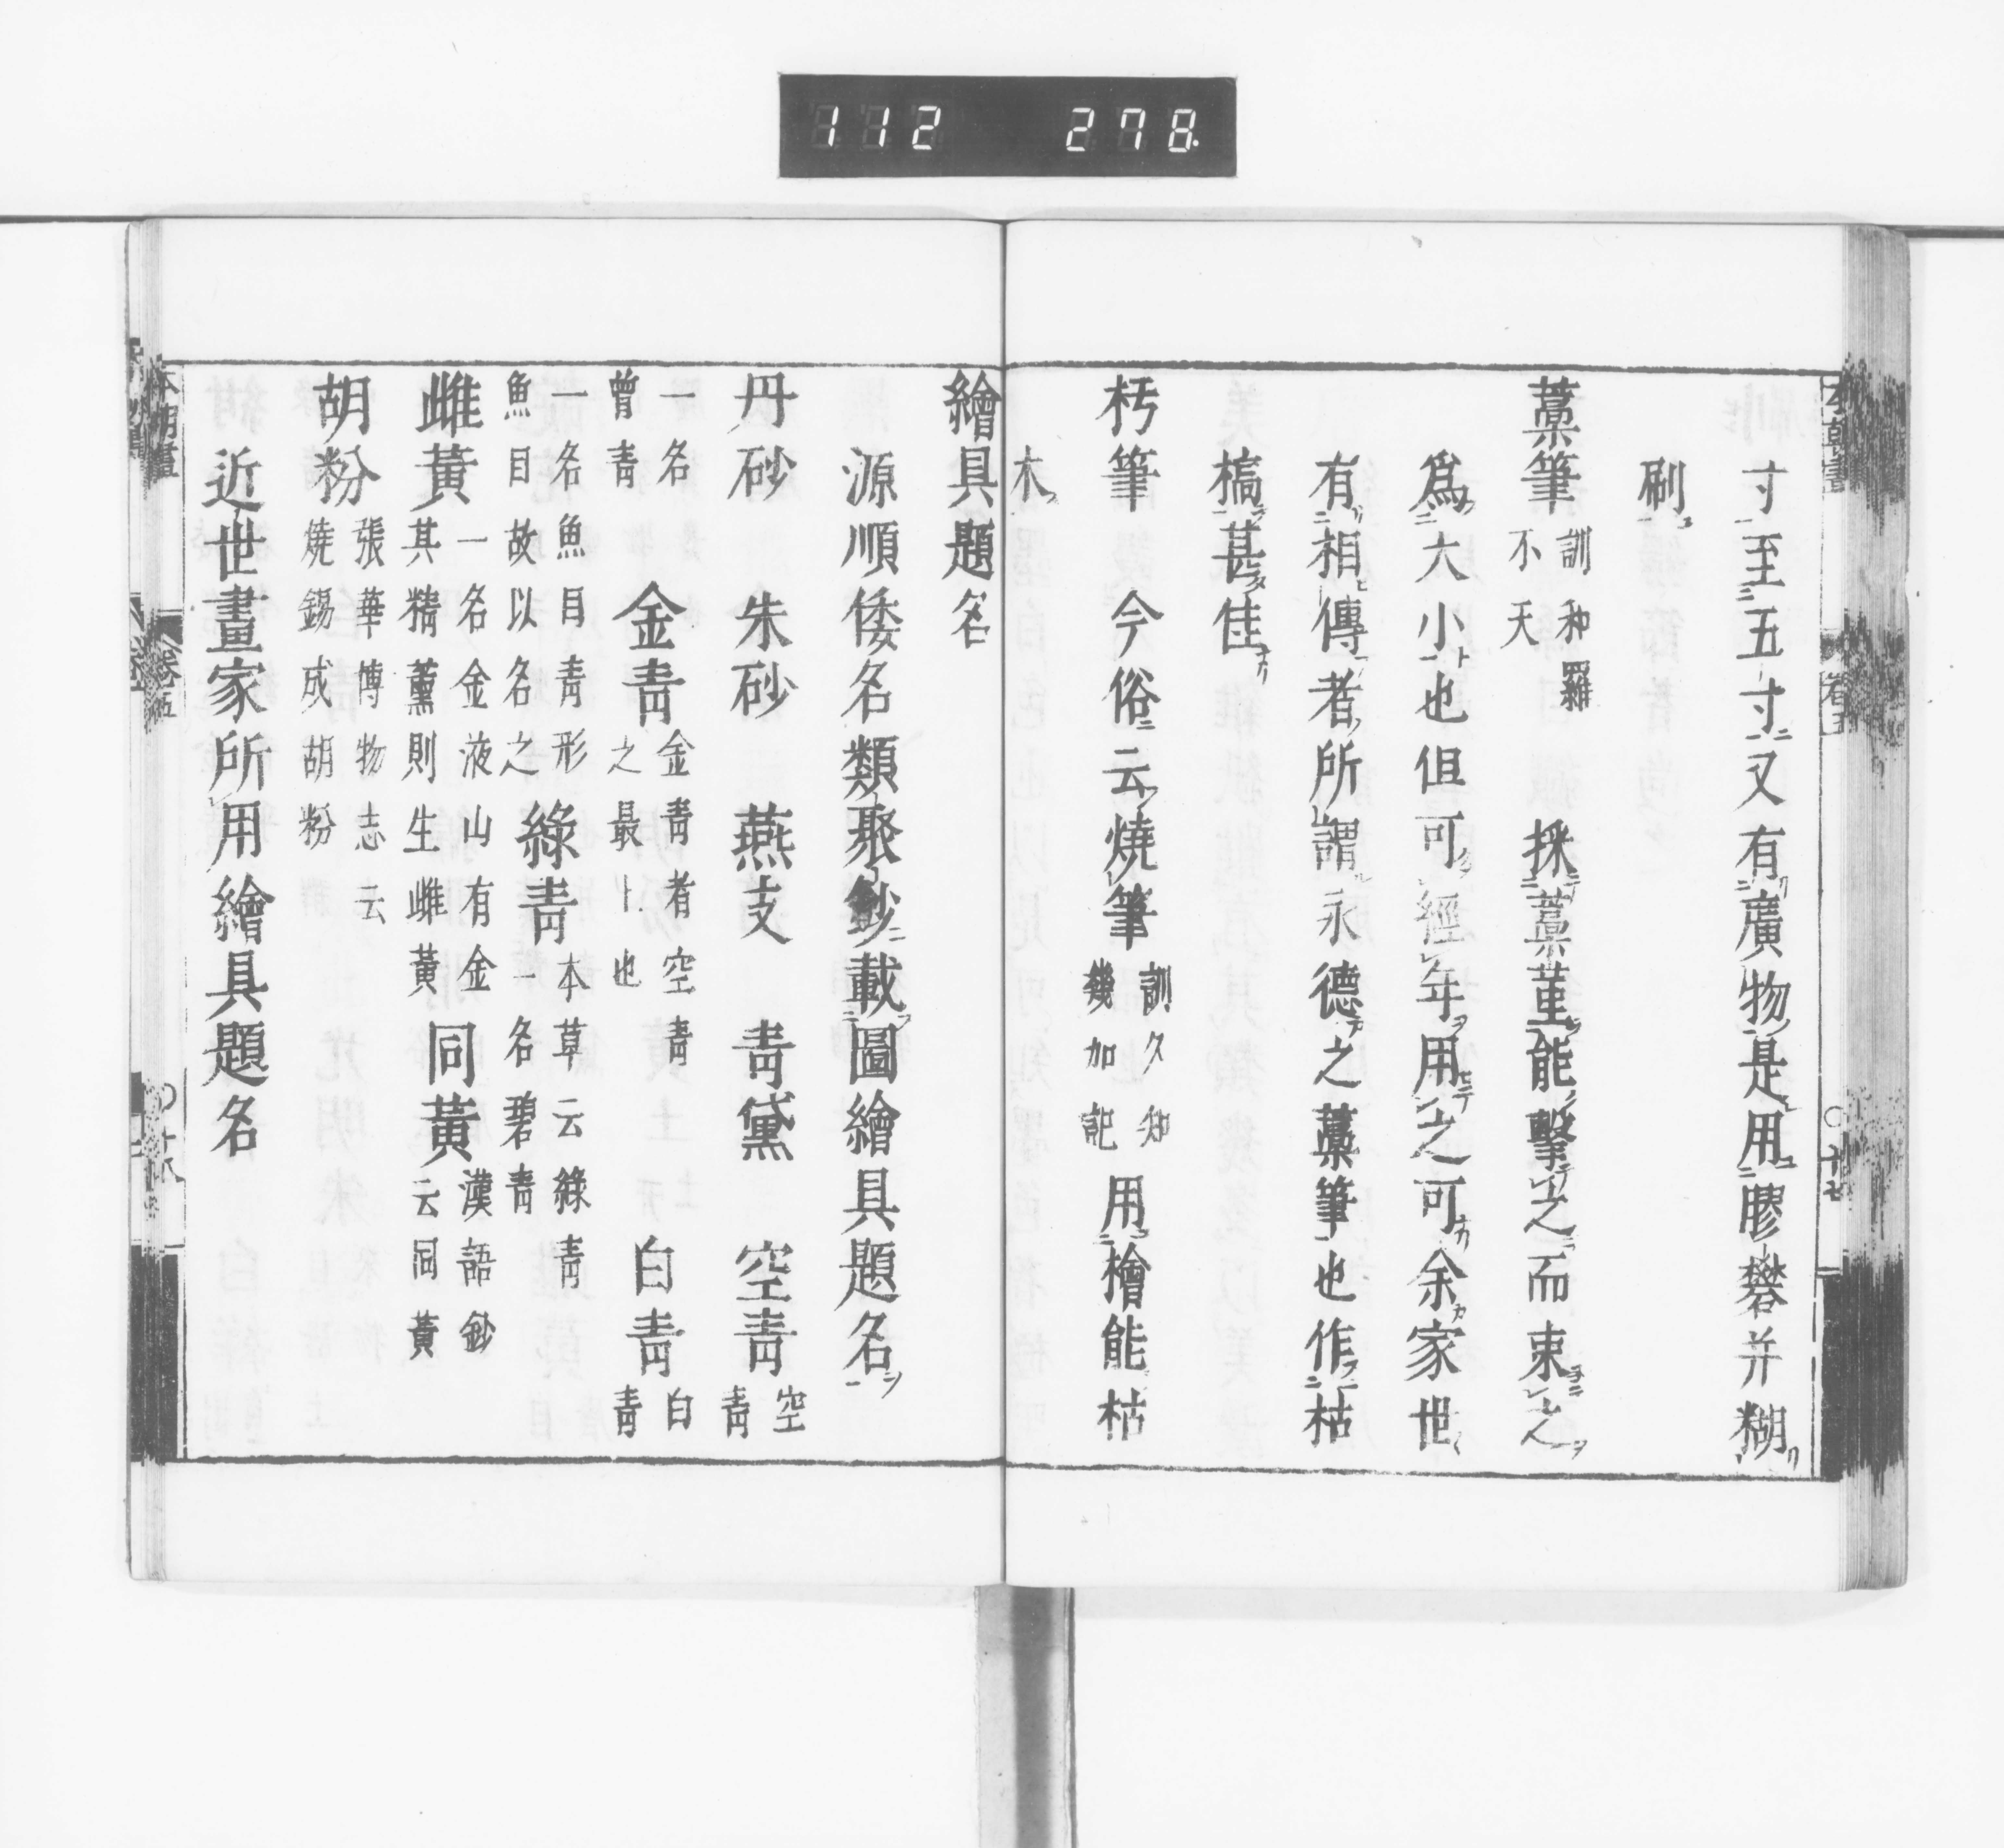 112 278
寸至五寸又有廣物是用膠礬并糊
刷
藁筆 訓和羅不天 採藁莖能擊之而束之
爲大小也但可經年用之可余家世
有相傳者所謂永德之藁筆也作枯
槁甚佳
朽筆 今俗云燒筆 訓久知幾加記 用檜能枯
木
繪具題名
源順倭名類聚鈔載圖繪具題名
丹砂 朱砂 燕支 青黛 空青 空青
一名曾青 金青 金青者空青之最上也 白青 白青
一名魚目青形魚目故以名之 綠青 本草云綠青一名碧青
雌黃 一名金液山有金其精薰則生雌黃 同黃 漢語鈔云同黃
胡粉 張華博物志云燒錫成胡粉
近世畫家所用繪具題名
本朝畫 卷五